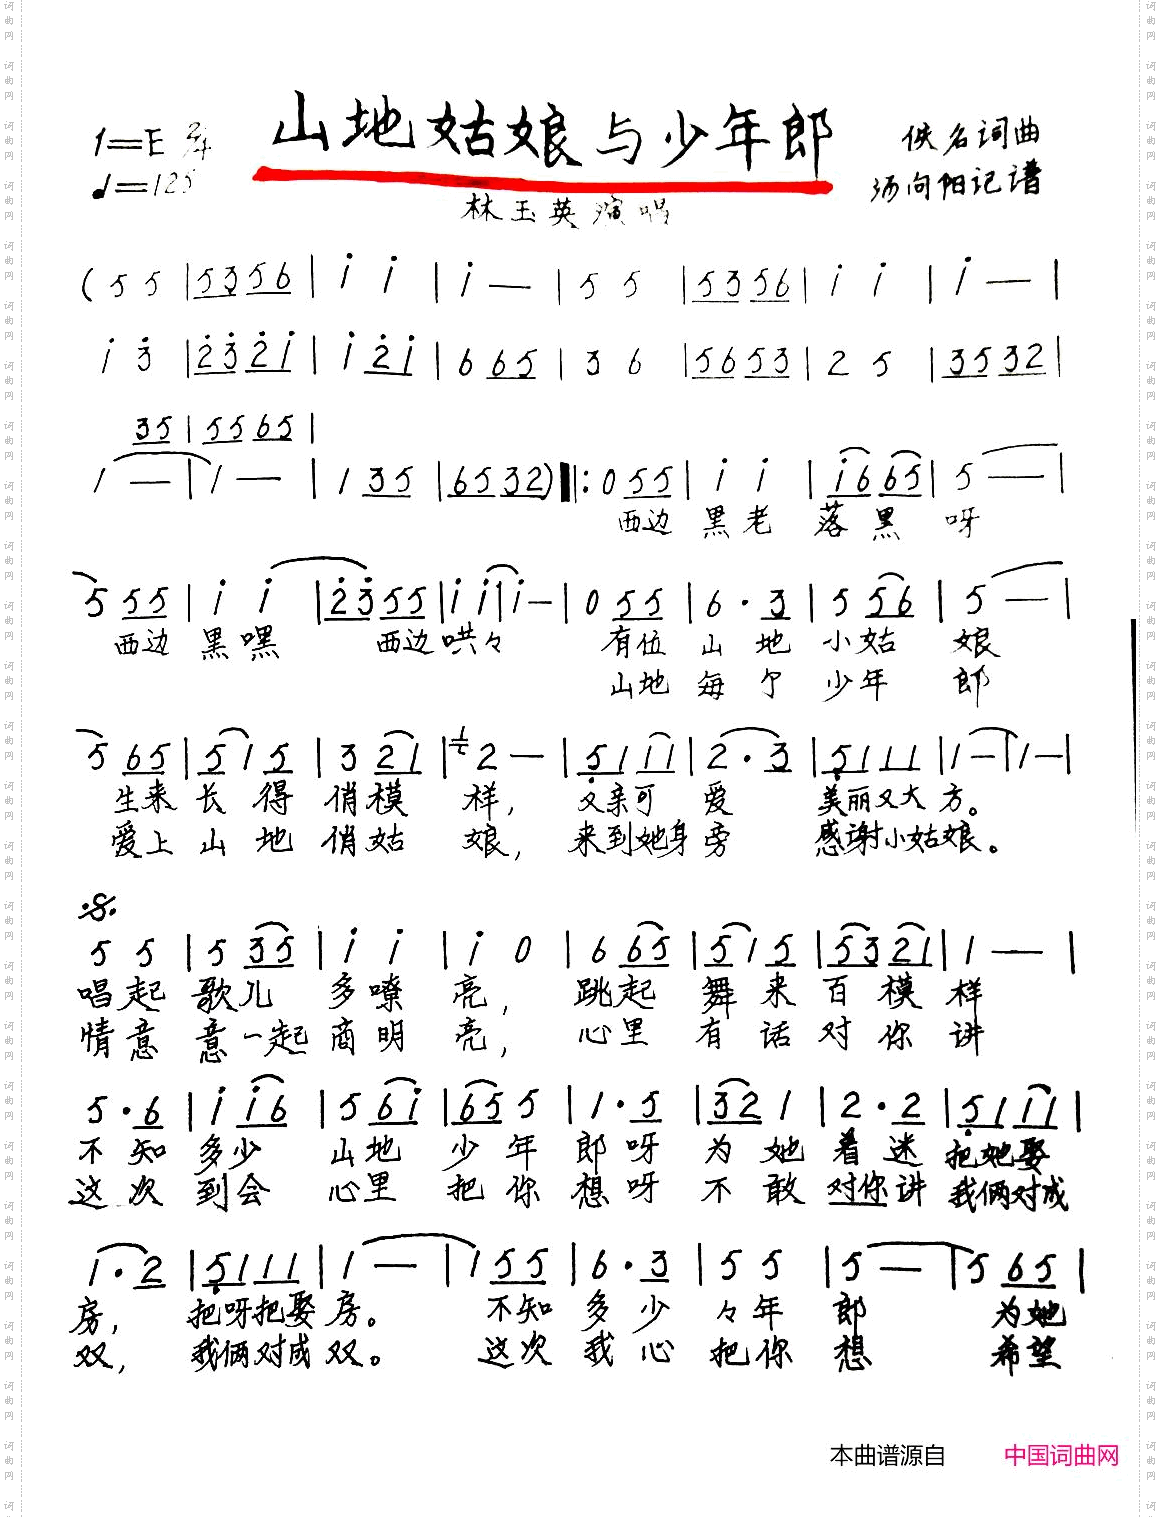 山地姑娘与少年郎
1=E 2/4
♩=125
佚名词曲
汤向阳记谱
林玉英演唱
(5 5 | 5356 | i i | i — | 5 5 | 5356 | i i | i — |
i 3 | 2321 | i 2i | 6 65 | 3 6 | 5653 | 2 5 | 3532 |
35 | 55 65 |
1 — | 1 — | 1 35 | 6532) ‖: 0 55 | i i | i6 65 | 5 — |
西边 黑老 落黑 呀
5 55 | i i | 2355 | i i | i — | 0 55 | 6 · 3 | 5 56 | 5 — |
西边 黑嘿 西边哄々 有位 山地 小姑 娘
山地 每个 少年 郎
5 65 | 5 1 5 | 3 21 | 2 — | 51 11 | 2 · 3 | 51 11 | 1 — | 1 — |
生来 长得 俏模 样, 又亲可 爱 美丽又大方。
爱上 山地 俏姑 娘, 来到她身旁 感谢小姑娘。
5 5 | 5 35 | i i | i 0 | 6 65 | 5 1 5 | 53 21 | 1 — |
唱起 歌儿 多嘹 亮, 跳起 舞来 百模 样
情意 意一起 商明 亮, 心里 有话 对你 讲
5 · 6 | i i6 | 5 6i | 65 5 | 1 · 5 | 32 1 | 2 · 2 | 51 11 |
不知 多少 山地 少年 郎呀 为她 着迷 把她娶
这次 到会 心里 把你 想呀 不敢 对你讲 我俩对成
1 · 2 | 51 11 | 1 — | 1 55 | 6 · 3 | 5 5 | 5 — | 5 65 |
房, 把呀把娶房。 不知 多少 々年 郎 为她
双, 我俩对成双。 这次 我心 把你 想 希望
本曲谱源自 中国词曲网